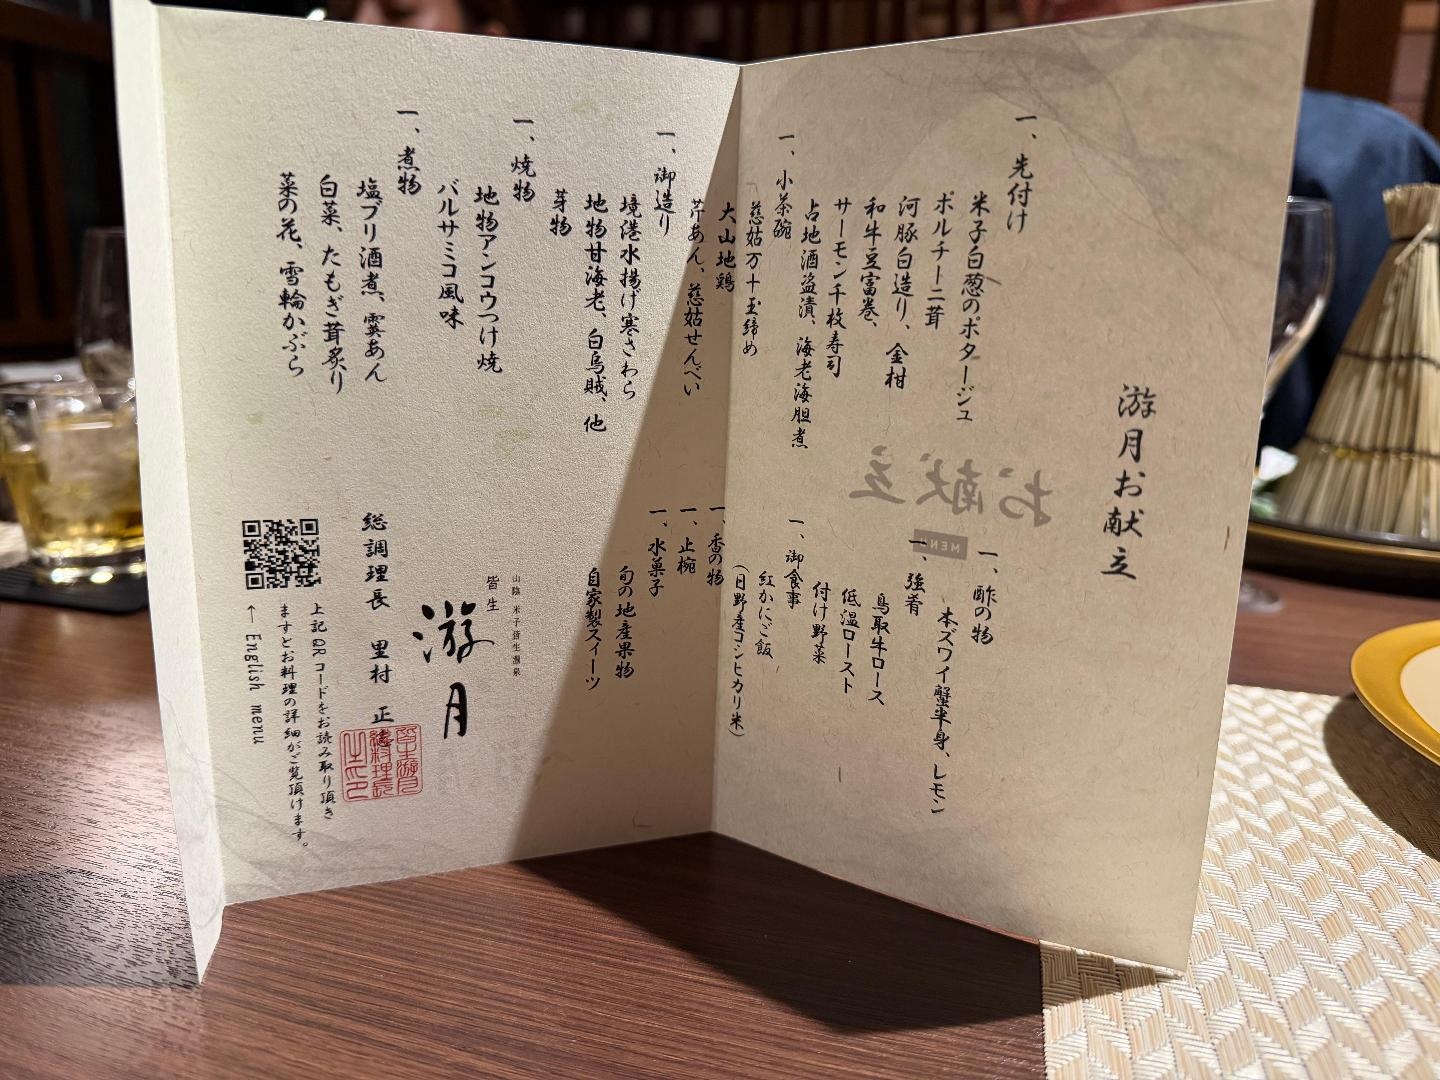 游月お献立
一、先付け
米子白葱のポタージュ
ポルチーニ茸
河豚白造り、金柑
和牛豆富巻、
サーモン千枚寿司
占地酒盗漬、海老海胆煮
一、小茶碗
慈姑万十玉締め
大山地鶏
芹あん、慈姑せんべい
一、御造り
境港水揚げ寒さわら
地物甘海老、白烏賊、他
芽物
一、焼物
地物アンコウつけ焼
バルサミコ風味
一、煮物
塩ブリ酒煮、霙あん
白菜、たもぎ茸炙り
菜の花、雪輪かぶら
一、酢の物
本ズワイ蟹半身、レモン
一、強肴
鳥取牛ロース
低温ロースト
付け野菜
一、御食事
紅かにご飯
(日野産コシヒカリ米)
一、香の物
一、止椀
一、水菓子
旬の地産果物
自家製スィーツ
山陰 米子皆生温泉
皆生
游月
総調理長 里村 正
上記QRコードをお読み取り頂き
ますとお料理の詳細がご覧頂けます。
← English menu
お献立
MENU